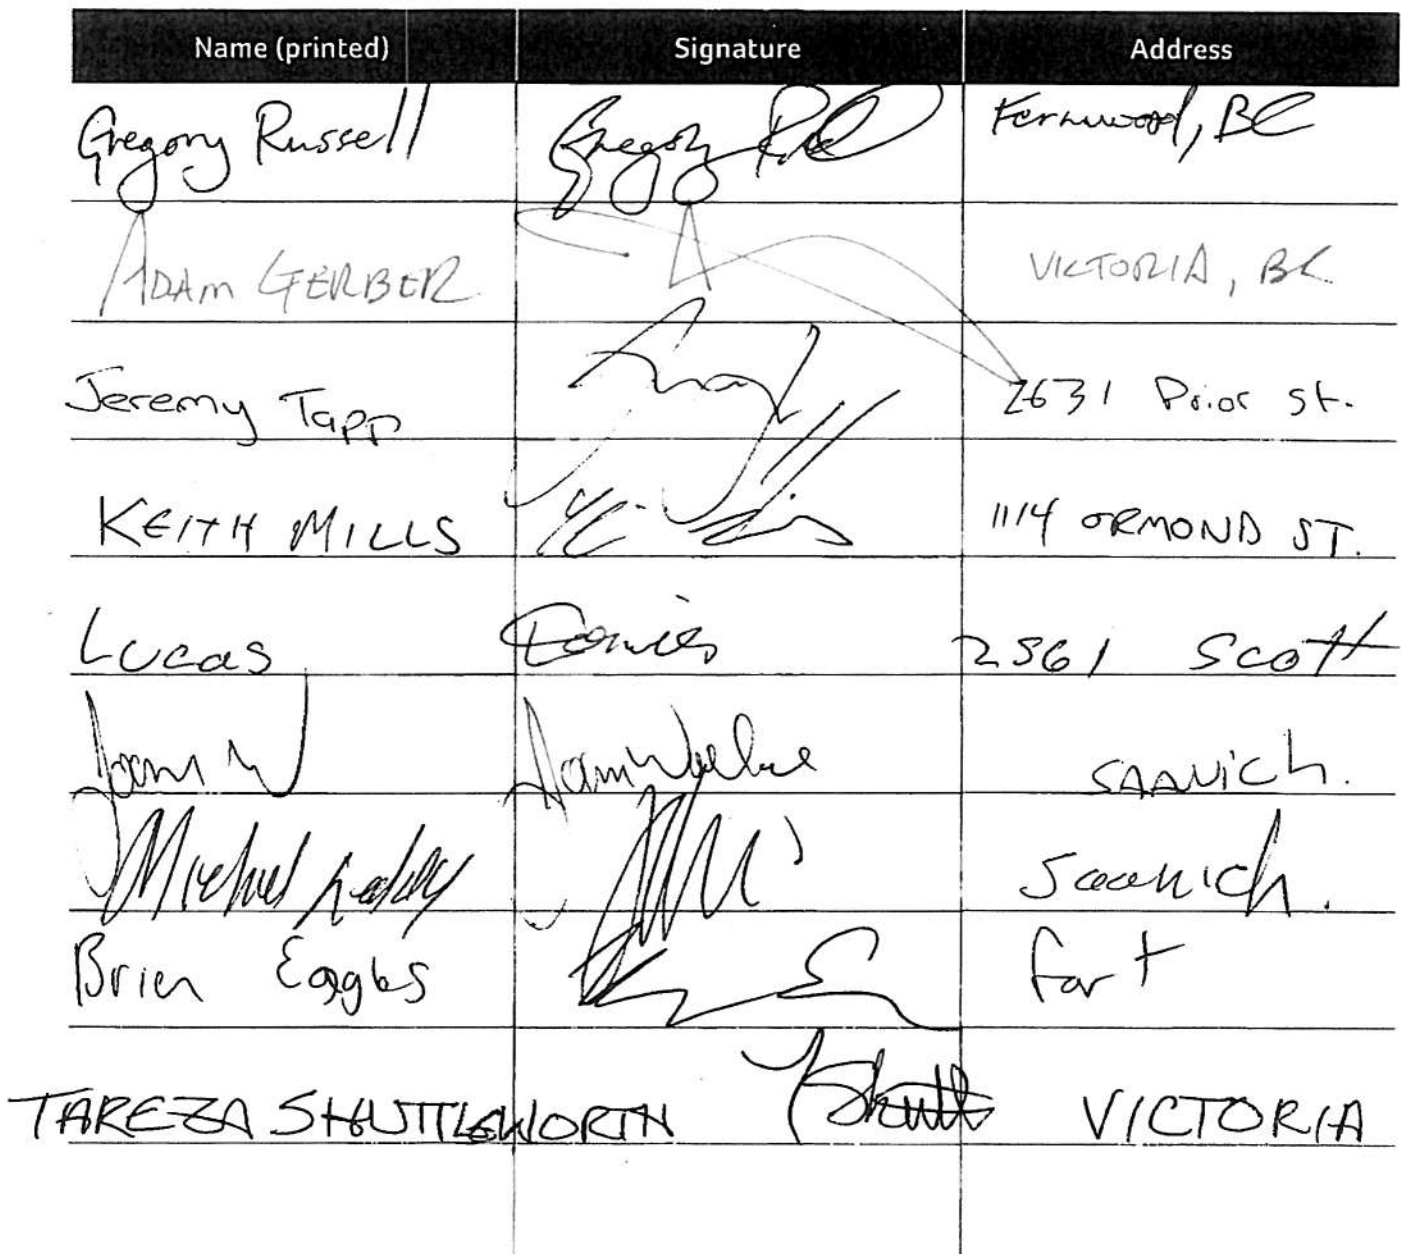 Name (printed) Signature Address
Gregory Russell Gregory Fernwood, BC
ADAM GERBER VICTORIA, BC
Jeremy Tapp 2631 Prior St.
KEITH MILLS 1114 ORMOND ST.
Lucas 2561 Scott
Adam W Adam SAANICH.
Michael Saanich.
Brian Eagles Fort
TAREZA SHUTTLEWORTH VICTORIA